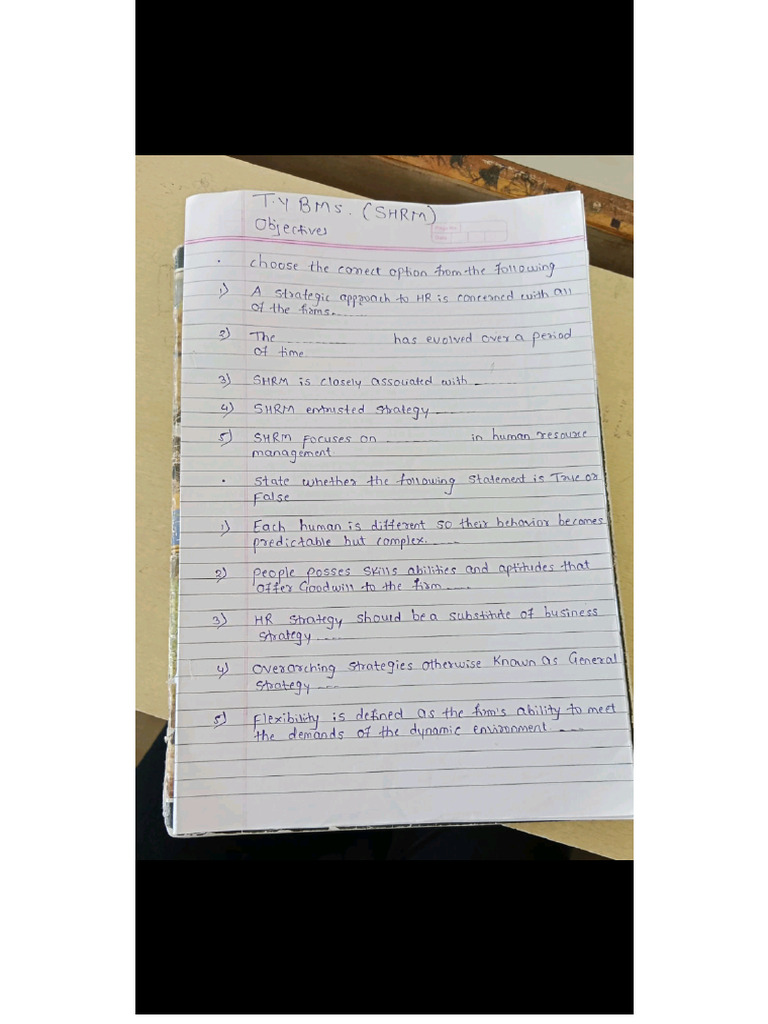 T.Y BMS. (SHRM)
Objectives
Page No.
Date
• choose the correct option from the following
1) A strategic approach to HR is concerned with all
of the firms.......
2) The ............... has evolved over a period
of time.
3) SHRM is closely associated with ........
4) SHRM entrusted strategy ........
5) SHRM focuses on ............ in human resource
management
• State whether the following statement is True or
False
1) Each human is different so their behavior becomes
predictable but complex. .....
2) People posses skills abilities and aptitudes that
offer Goodwill to the firm ....
3) HR strategy should be a substitute of business
strategy ....
4) Overarching strategies otherwise known as General
strategy ....
5) Flexibility is defined as the firm's ability to meet
the demands of the dynamic environment ....